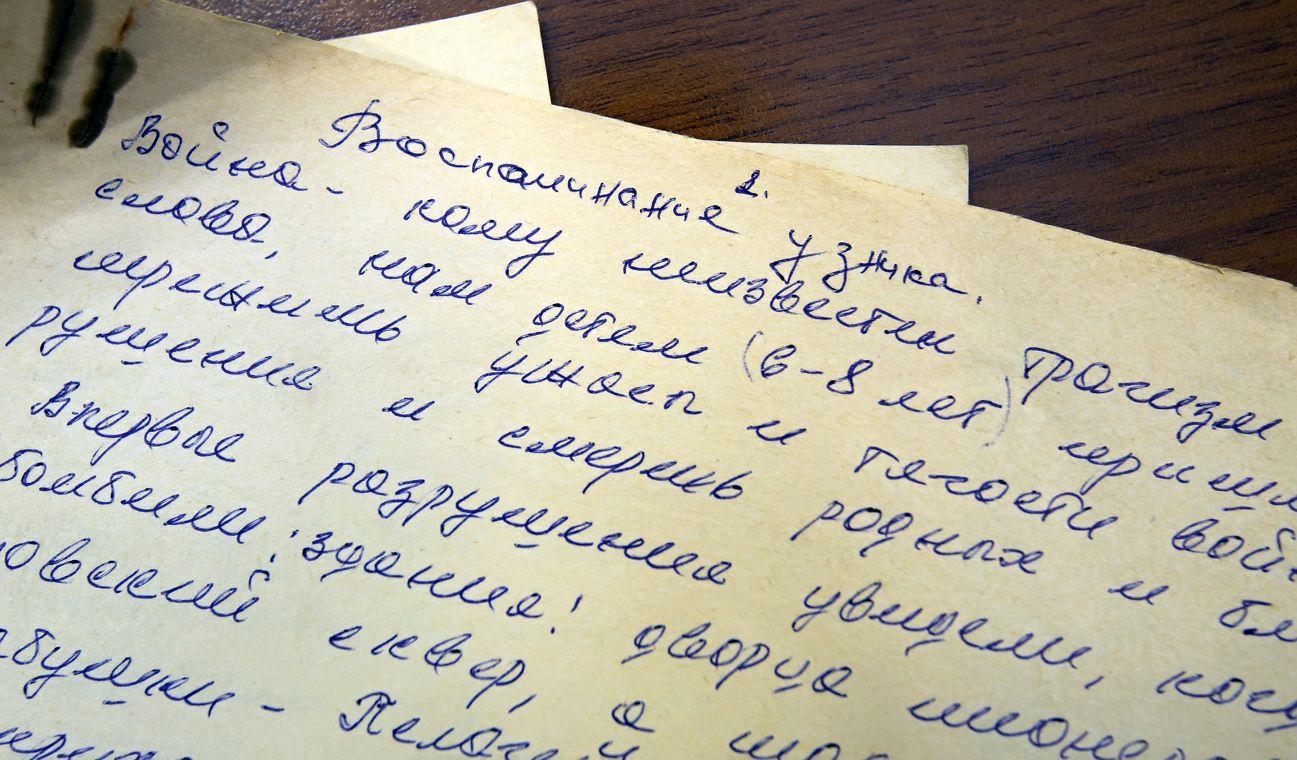 1.
Воспоминания узника.
Война - кому неизвестен трагизм
слова, нам детям (6-8 лет) пришл
пережить ужасы и тягости вой
рушения и смерть родных и бл
Впервые разрушения увидели, ког
бомбили: здания: дворца пионер
овский сквер, а
бушки - Пелагеи